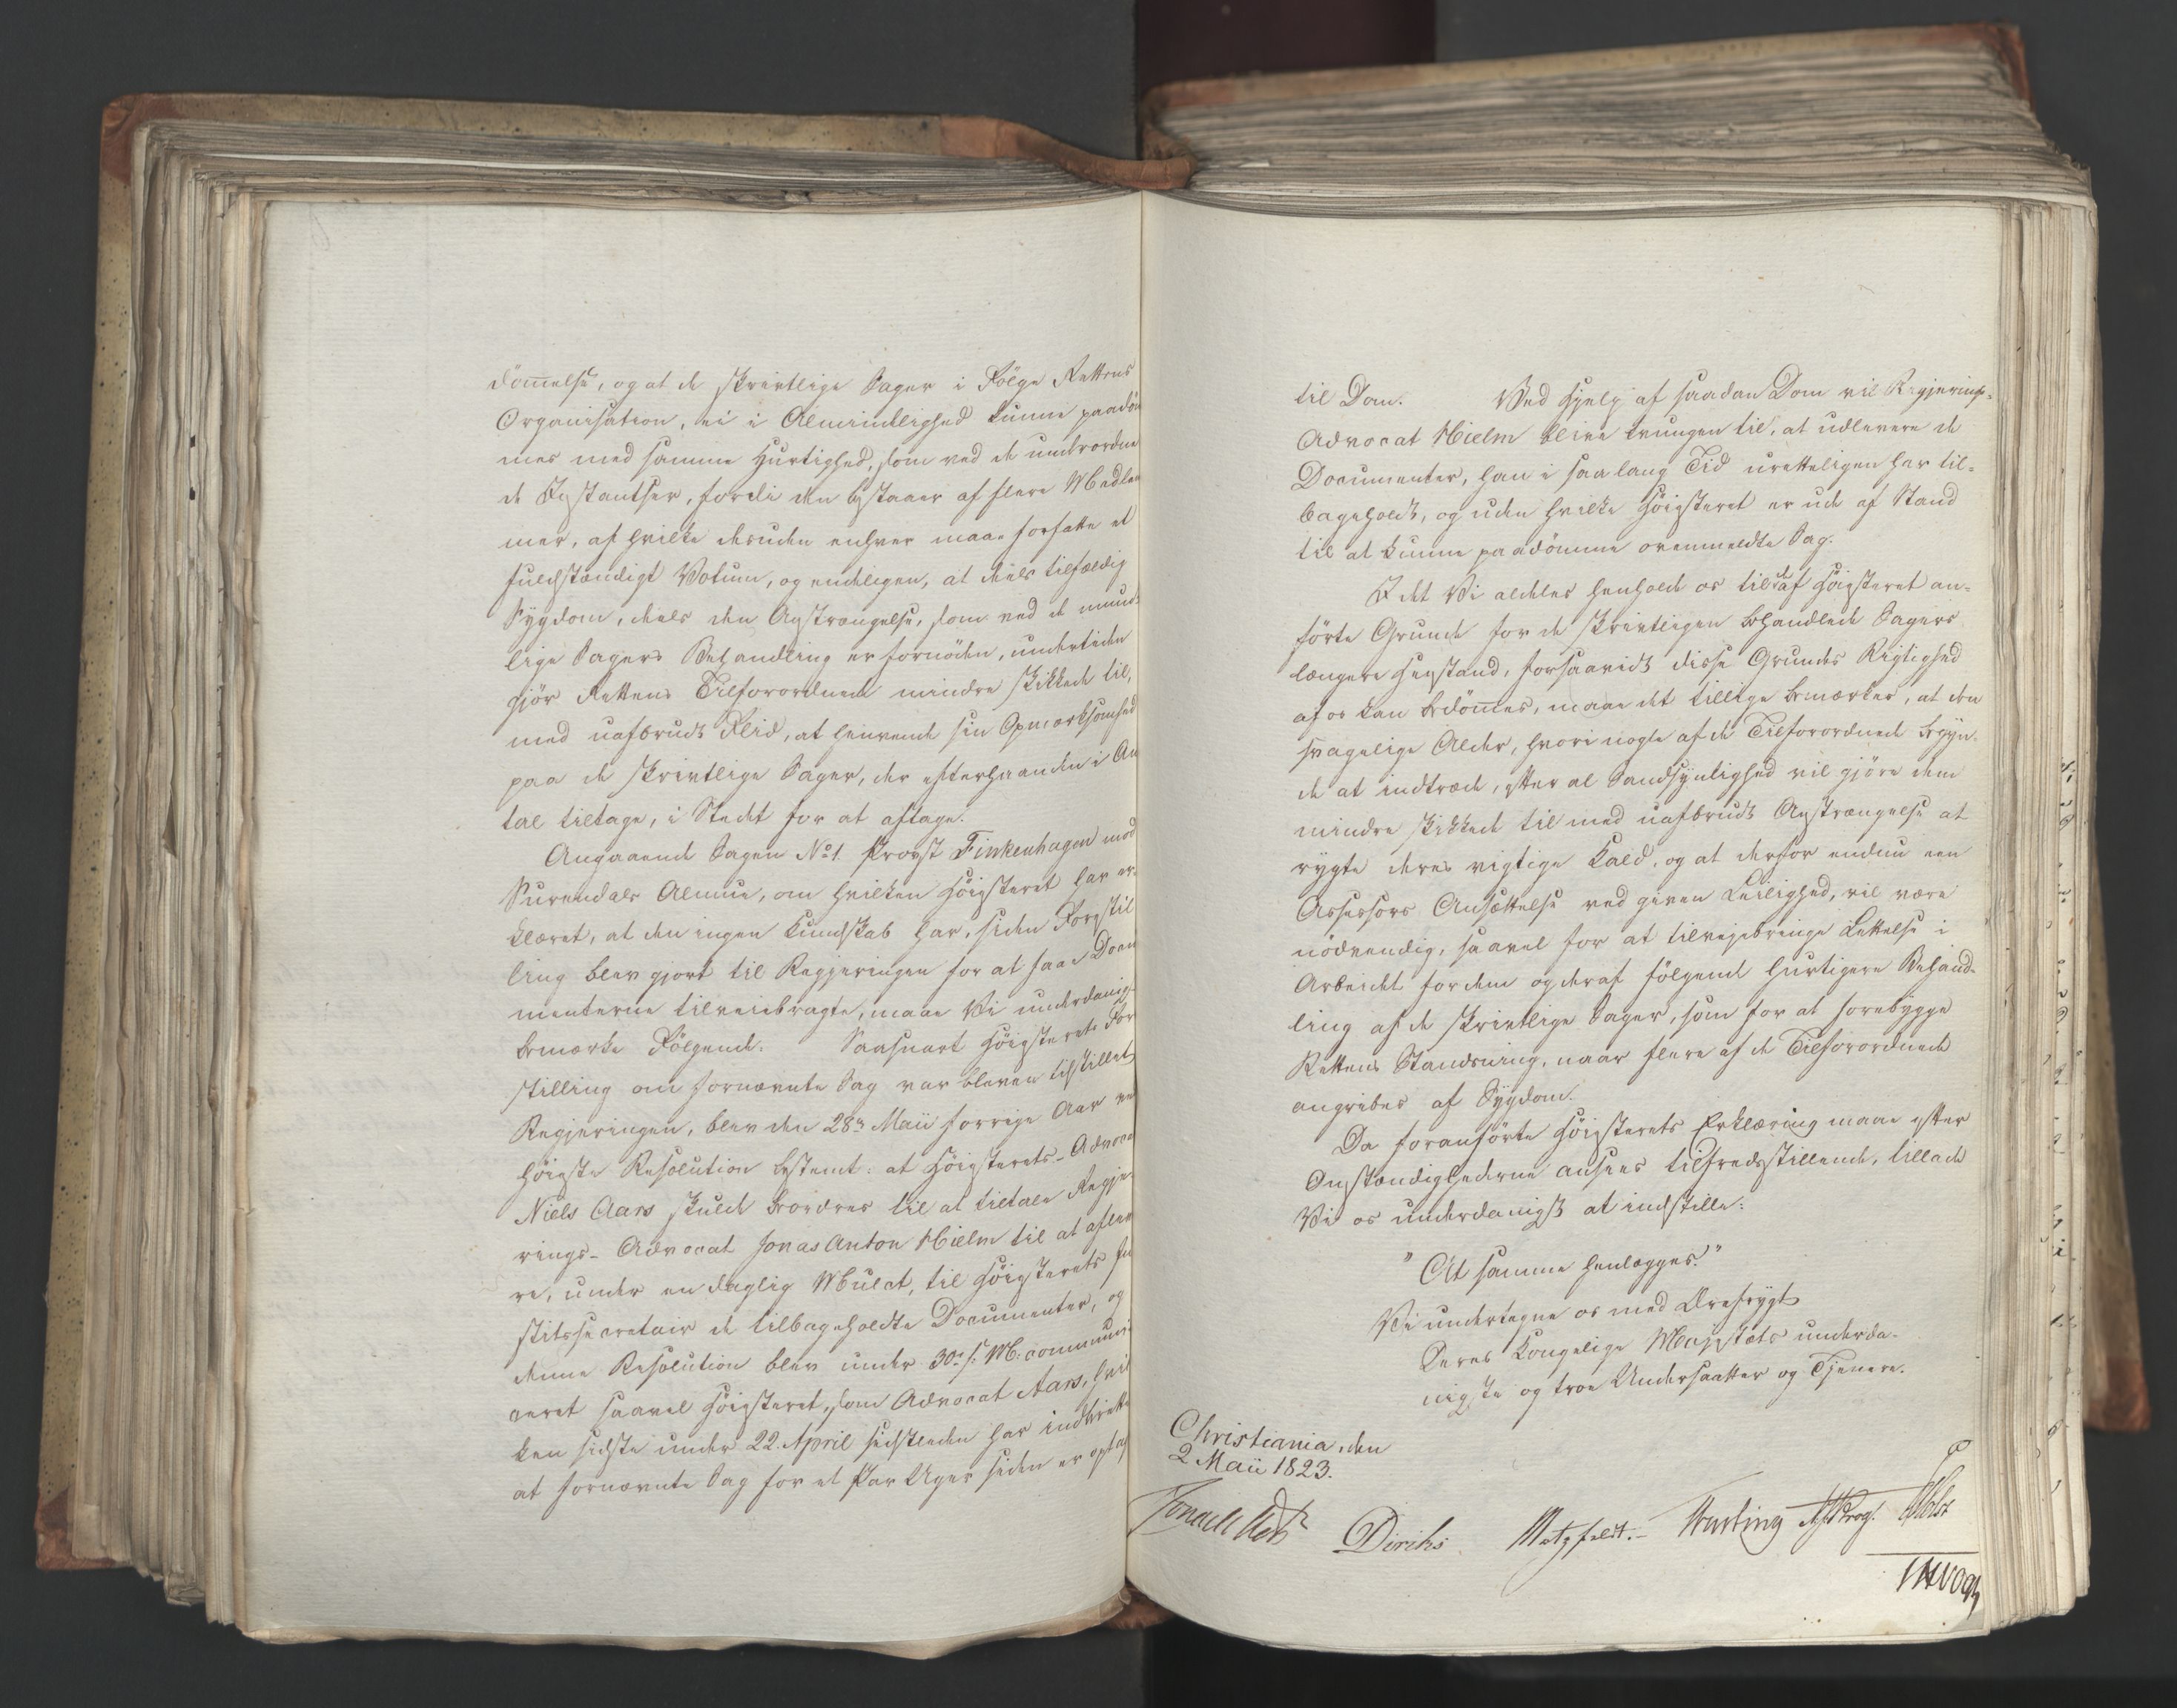 dömelse, og at de skrivtlige Sager i Fölge Rettens
Organisation, ei i Almindelighed kunne paadöm
mes med samme Hurtighed, som ved de underordne
de Instantser, fordi den bestaaer af flere Medlem
mer, af hvilke desuden enhver maae forfatte et
fuldstændigt Votum, og endeligen, at deels tilfældig
Sygdom, deels den Anstrængelse, som ved de mund-
lige Sagers Behandling er fornöden, undertiden
gjör Rettens Tilforordnede mindre skikkede til,
med uafbrudt Flid, at henvende sin Opmærksomhed
paa de skrivtlige Sager, der efterhaanden i An
tal tiltage, i Stedet for at aftage.
Angaaende Sagen No 1. Provst Finkenhagen mod
Surendals Almue, om hvilken Höiesteret har er-
klæret, at den ingen Kundskab har, siden Forestil
ling blev gjort til Regjeringen for at faae Docu
menterne tilveiebragte, maae Vi underdanigst
bemærke Fölgende: Saasnart Höiesterets Fore
stilling om fornævnte Sag var bleven tilstillet
Regjeringen, blev den 28de Maii forrige Aar ved
höieste Resolution bestemt: at Höiesterets-Advocat
Niels Aars skulde beordres til at tiltale Regje-
rings-Advocat Jonas Anton Hielm til at afleve
re, under en daglig Mulct, til Höiesterets Ju
stitssecretair de tilbageholdte Documenter, og
denne Resolution blev under 30te s. M. communi
ceret saavel Höiesteret, som Advocat Aars, hvil
ken sidste under 22. April sidstleden har indberettet
at fornævnte Sag for et Par Uger siden er optaget
til Dom. Ved Hjelp af saadan Dom vil Regjerings-
Advocat Hielm blive tvungen til, at udlevere de
Documenter, han i saa lang Tid uretteligen har til-
bageholdt, og uden hvilke Höiesteret er ude af Stand
til at kunne paadömme ovenmeldte Sag.
I det Vi aldeles henholde os til de af Höiesteret an-
förte Grunde for de skrivtligen behandlede Sagers
længere Henstand, forsaavidt disse Grundes Rigtighed
af os kan bedömes, maae det tillige bemærkes, at den
svagelige Alder, hvori nogle af de Tilforordnede begyn-
de at indtræde, efter al Sandsynlighed vil gjöre dem
mindre skikkede til med uafbrudt Anstrængelse at
rygte deres vigtige Kald, og at derfor endnu een
Assessors Ansættelse ved given Leilighed, vil være
nödvendig, saavel for at tilvejebringe Lettelse i
Arbeidet for dem og deraf fölgende hurtigere Behand-
ling af de skrivtlige Sager, som for at forebygge
Rettens Standsning, naar flere af de Tilforordnede
angribes af Sygdom.
Da foranförte Höiesterets Erklæring maae efter
Omstændighederne ansees tilfredsstillende, tillade
Vi os underdanigst at indstille:
"At samme henlægges."
Vi undertegne os med Ærefrygt
Deres Kongelige Majestæts underda-
nigste og troe Undersaatter og Tjenere.
Christiania, den
2 Maii 1823.
Diriks Motzfeldt. Krog. Holst
JHVogt